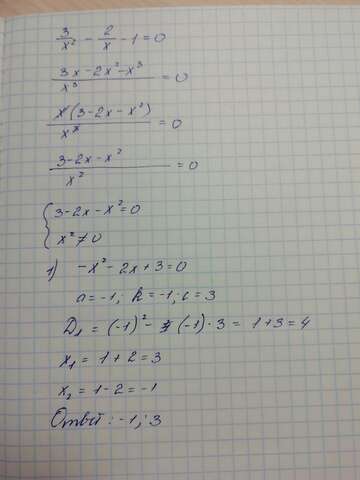 3/x² - 2/x - 1 = 0
(3x - 2x² - x³)/x³ = 0
x(3 - 2x - x²)/x³ = 0
(3 - 2x - x²)/x² = 0
{3 - 2x - x² = 0
x² ≠ 0
1) -x² - 2x + 3 = 0
a = -1; k = -1; c = 3
D₁ = (-1)² - (-1) · 3 = 1 + 3 = 4
x₁ = 1 + 2 = 3
x₂ = 1 - 2 = -1
Ответ: -1; 3